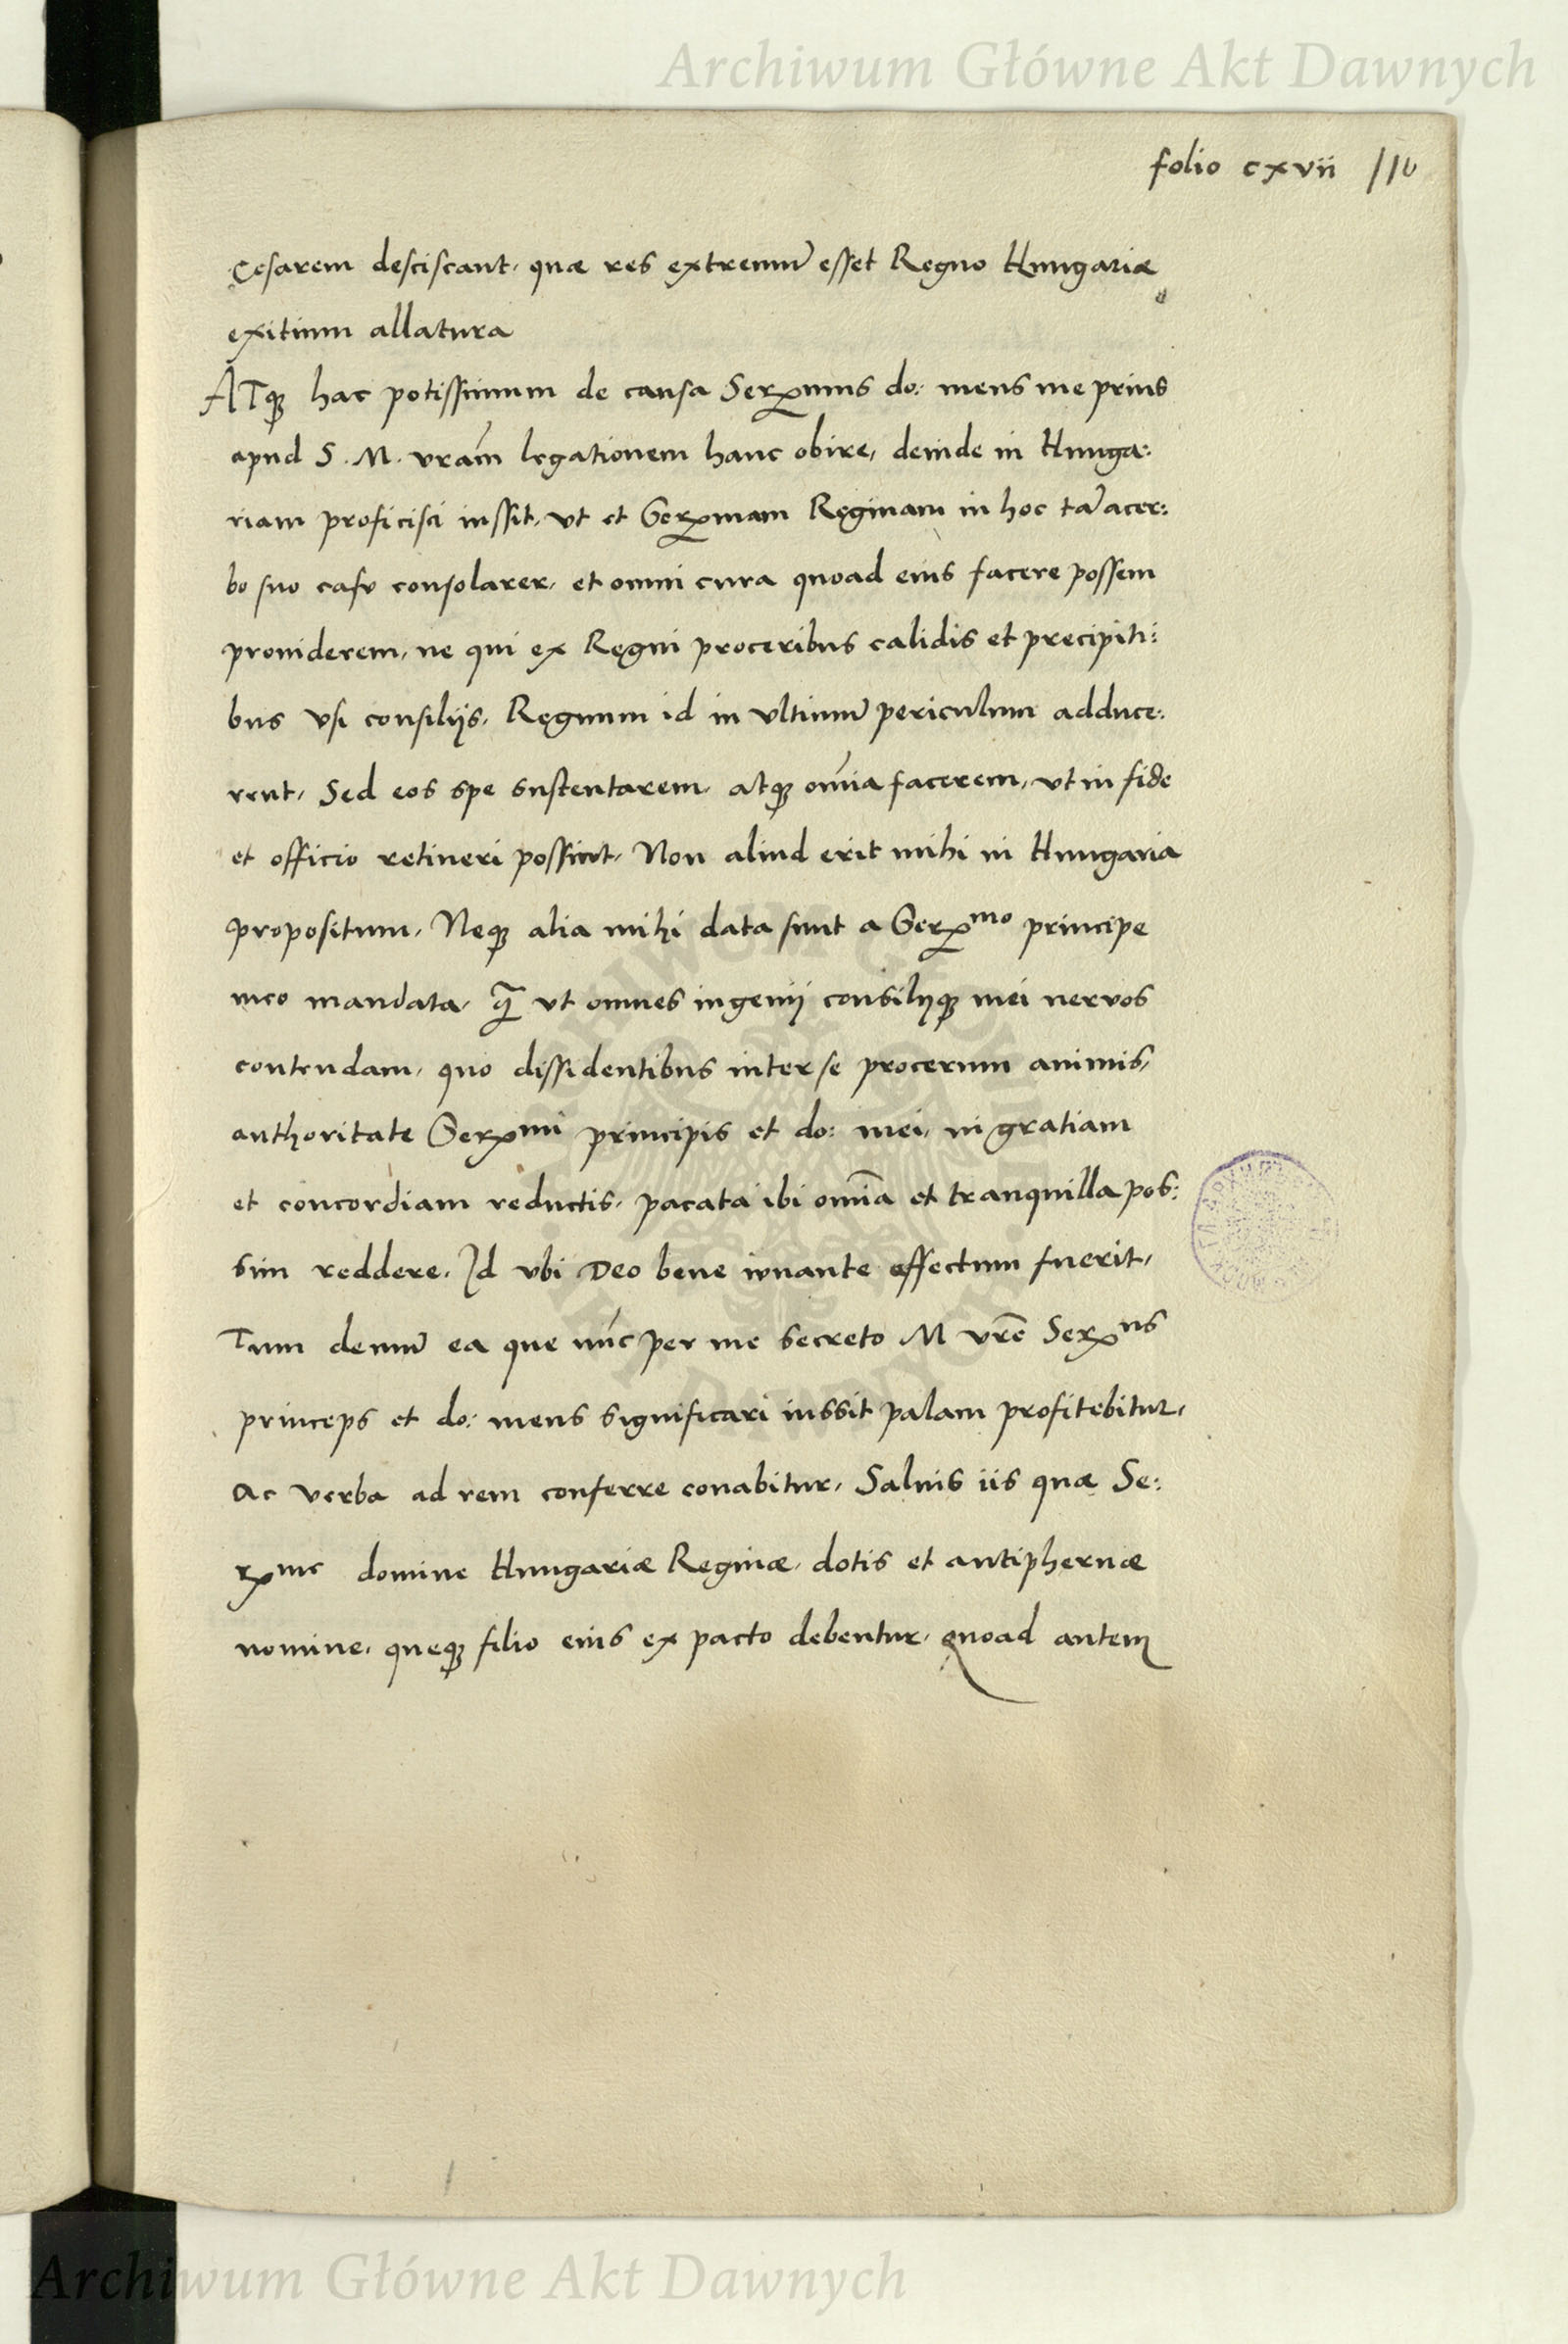 Archiwum Główne Akt Dawnych
folio cxvii 116
Cęsarem desciscant, quæ res extremū esset Regno Hungariæ
exitium allatura
ATqꝫ hac potissimum de causa Serꝫmus do: meus me prius
apud S. M. vrām legationem hanc obire, deinde in Hunga:
riam proficisci iussit, vt et Serꝫmam Reginam in hoc tā acer:
bo suo casu consolarer, et omni cura quoad eius facere possem
prouiderem, ne qui ex Regni proceribus calidis et precipiti:
bus vsi consilijs, Regnum id in vltimū periculum adduce:
rent, Sed eos spe sustentarem, atqꝫ omīa facerem, vt in fide
et officio retineri possint, Non aliud erit mihi in Hungaria
propositum, Neqꝫ alia mihi data sunt a Serꝫmo principe
meo mandata, q̄ vt omnes ingenij consilijqꝫ mei nervos
contendam, quo dissidentibus inter se procerum animis,
authoritate Serꝫmi principis et do: mei, in gratiam
et concordiam reductis, pacata ibi omīa et tranquilla pos:
sim reddere. Id vbi Deo bene iuuante effectum fuerit,
Tum demū ea que nūc per me secreto M vrē Serꝫus
princeps et do: meus significari iussit palam profitebitur,
Ac verba ad rem conferre conabitur, Saluis iis quæ Se:
rꝫme domine Hungariæ Reginæ, dotis et antiphernæ
nomine, queqꝫ filio eius ex pacto debentur, quoad autem
Archiwum Główne Akt Dawnych